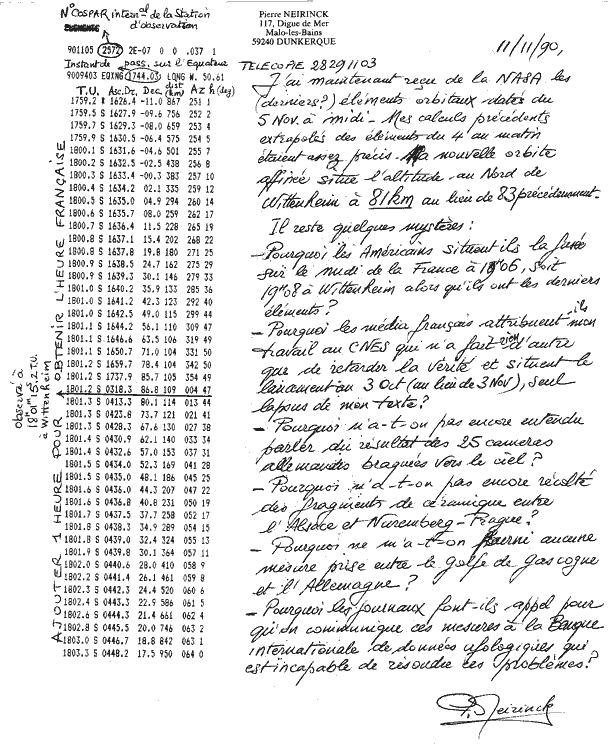 N° COSPAR internal de la Station
d'observation
901105 2572 2E-07 0 0 .037 1
Instant de pass. sur l'Equateur
9009403 EQXNG 1744.03 LQNG W. 50.61
T.U. Asc.Dr. Dec. dist (km) Az h(deg)
1759.2 * 1626.4 -11.0 867 251 1
1759.5 S 1627.9 -09.6 756 252 2
1759.7 S 1629.3 -08.0 659 253 4
1759.9 S 1630.5 -06.4 575 254 5
1800.1 S 1631.6 -04.6 501 255 7
1800.2 S 1632.5 -02.5 438 256 8
1800.3 S 1633.4 -00.3 383 257 10
1800.4 S 1634.2 02.1 335 259 12
1800.5 S 1635.0 04.9 294 260 14
1800.6 S 1635.7 08.0 259 262 17
1800.7 S 1636.4 11.5 228 265 19
1800.8 S 1637.1 15.4 202 268 22
1800.8 S 1637.8 19.8 180 271 25
1800.9 S 1638.5 24.7 162 275 29
1800.9 S 1639.3 30.1 146 279 33
1801.0 S 1640.2 35.9 133 285 36
1801.0 S 1641.2 42.3 123 292 40
1801.0 S 1642.5 49.0 115 299 44
1801.1 S 1644.2 56.1 110 309 47
1801.1 S 1646.6 63.5 106 319 49
1801.1 S 1650.7 71.0 104 331 50
1801.2 S 1659.7 78.4 104 342 50
1801.2 S 1737.9 85.7 105 354 49
1801.2 S 0318.3 86.8 109 004 47
1801.3 S 0413.3 80.1 114 013 44
1801.3 S 0423.8 73.7 121 021 41
1801.3 S 0428.3 67.6 130 027 38
1801.4 S 0430.9 62.1 140 033 34
1801.4 S 0432.6 57.0 153 037 31
1801.4 S 0434.0 52.3 169 041 28
1801.5 S 0435.0 48.1 186 045 25
1801.6 S 0436.0 44.3 207 047 22
1801.6 S 0436.8 40.8 231 050 19
1801.7 S 0437.5 37.7 258 052 17
1801.7 S 0438.3 34.9 289 054 15
1801.8 S 0439.0 32.4 324 055 13
1801.9 S 0439.8 30.1 364 057 11
1802.0 S 0440.6 28.0 410 058 9
1802.1 S 0441.4 26.1 461 059 8
1802.3 S 0442.3 24.4 520 060 6
1802.4 S 0443.3 22.9 586 061 5
1802.6 S 0444.3 21.4 661 062 4
1802.8 S 0445.5 20.0 746 063 2
1803.0 S 0446.7 18.8 842 063 1
1803.3 S 0448.2 17.5 950 064 0
AJOUTER 1 HEURE POUR OBTENIR L'HEURE FRANÇAISE
observé à
18h01m15s T.U.
à Wittenheim
Pierre NEIRINCK
117, Digue de Mer
Malo-les-Bains
59240 DUNKERQUE
11/11/90,
TELECOPE 28291103
J'ai maintenant reçu de la NASA les
(derniers?) éléments orbitaux datés du
5 Nov. à midi - Mes calculs précédents
extrapolés des éléments du 4 au matin
étaient assez précis. Ma nouvelle orbite
affinée situe l'altitude au Nord de
Wittenheim à 81km au lieu de 83 précédemment.
Il reste quelques mystères:
- Pourquoi les Américains situent ils la
sur le midi de la France à 06, soit
19h08 à Wittenheim alors qu'ils ont les derniers
éléments?
- Pourquoi les média français attribuent ils mon
travail au CNES qui n'a fait rien d'autre
que de retarder la vérité et situent le
au 3 Oct (au lieu de 3 Nov), seul
lapsus de mon texte?
- Pourquoi n'a-t-on pas encore entendu
parler du résultat des 25 cameras
allemandes braquées vers le ciel?
- Pourquoi n'a-t-on pas encore récolté
des fragments de céramique entre
l'Alsace et Nuremberg-Prague?
- Pourquoi ne m'a-t-on fourni aucune
mesure prise entre le golfe de gascogne
et l'Allemagne?
- Pourquoi les journaux font-ils appel pour
qu'on communique ces mesures à la Banque
internationale de données ufologiques qui
est incapable de résoudre ces problèmes?
P. Neirinck